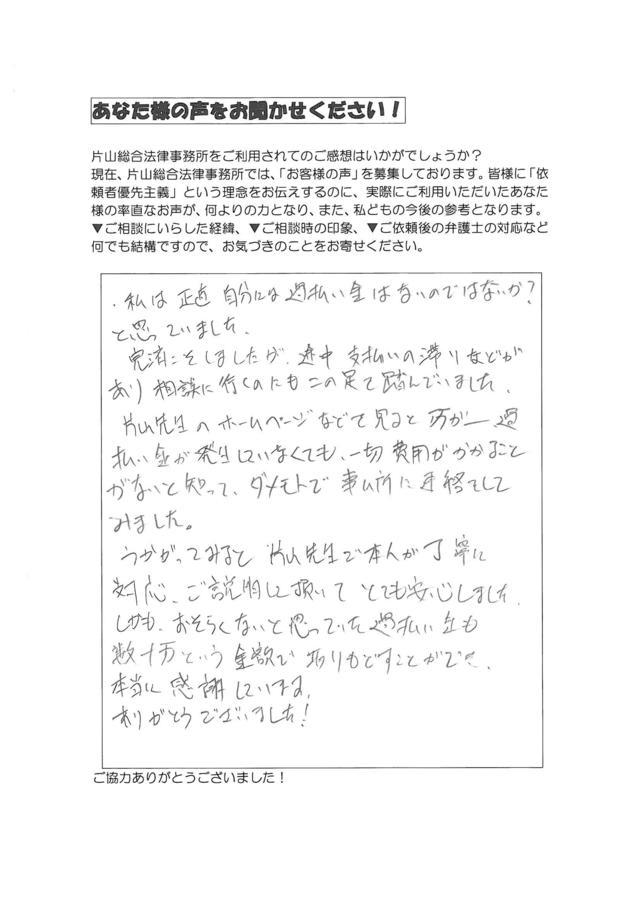 あなた様の声をお聞かせください！
片山総合法律事務所をご利用されてのご感想はいかがでしょうか？
現在、片山総合法律事務所では、「お客様の声」を募集しております。皆様に「依
頼者優先主義」という理念をお伝えするのに、実際にご利用いただいたあなた
様の率直なお声が、何よりの力となり、また、私どもの今後の参考となります。
▼ご相談にいらした経緯、▼ご相談時の印象、▼ご依頼後の弁護士の対応など
何でも結構ですので、お気づきのことをお寄せください。
・私は 正直 自分には過払い金はないのではないか？
と思っていました。
完済こそしましたが、途中 支払いの滞りなどが
あり 相談に行くのにも二の足を踏んでいました。
片山先生のホームページなどで見ると 万が一 過
払い金が発生していなくても、一切費用がかかること
がないと知って、ダメモトで 事ム所に連絡をして
みました。
うかがってみると 片山先生ご本人が丁寧に
対応、ご説明して頂いて とても安心しました。
しかも、おそらくないと思っていた過払い金も
数十万という金額で取りもどすことができ、
本当に感謝しています。
ありがとうございました！
ご協力ありがとうございました！